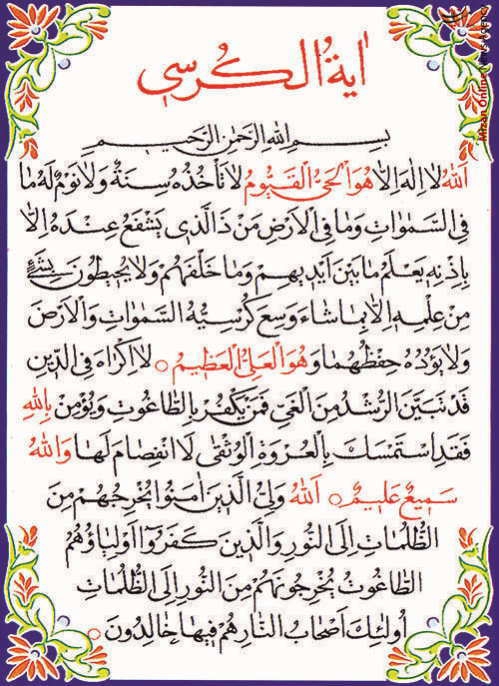 اٰیةُ الکُرسی
بِسمِ اللهِ الرَّحمٰنِ الرَّحیمِ
اَللهُ لا اِلهَ اِلاّٰ هُوَ الْحَیُّ الْقَیُّومُ لا تَأخُذُهُ سِنَةٌ وَ لا نَوْمٌ لَهُ ما
فِی السَّمٰوٰاتِ وَما فِی الْاَرْضِ مَنْ ذَا الَّذی یَشْفَعُ عِنْدَهُ اِلاّٰ
بِاِذْنِهِ یَعْلَمُ ما بَیْنَ اَیْدیهِمْ وَما خَلْفَهُمْ وَلا یُحیطُونَ بِشَیْءٍ
مِنْ عِلْمِهِ اِلاّٰ بِما شاءَ وَسِعَ کُرْسِیُّهُ السَّمٰوٰاتِ وَالْاَرْضَ
وَلا یَؤُدُهُ حِفْظُهُما وَ هُوَ الْعَلِیُّ الْعَظیمُ ○ لا اِکْراهَ فِی الدّینِ
قَدْ تَبَیَّنَ الرُّشْدُ مِنَ الْغَیِّ فَمَنْ یَکْفُرْ بِالطّاغُوتِ وَیُؤْمِنْ بِاللهِ
فَقَدِ اسْتَمْسَكَ بِالْعُرْوَةِ الْوُثْقٰی لَا انْفِصامَ لَها وَاللهُ
سَمیعٌ عَلیمٌ ○ اَللهُ وَلِیُّ الَّذینَ اٰمَنُوا یُخْرِجُهُمْ مِنَ
الظُّلُماتِ اِلَی النُّورِ وَالَّذینَ کَفَرُوٓا اَوْلِیاؤُهُمُ
الطّاغُوتُ یُخْرِجُونَهُمْ مِنَ النُّورِ اِلَی الظُّلُماتِ
اُولئِكَ اَصْحابُ النّارِ هُمْ فیها خٰالِدُونَ ○
Mizan Online